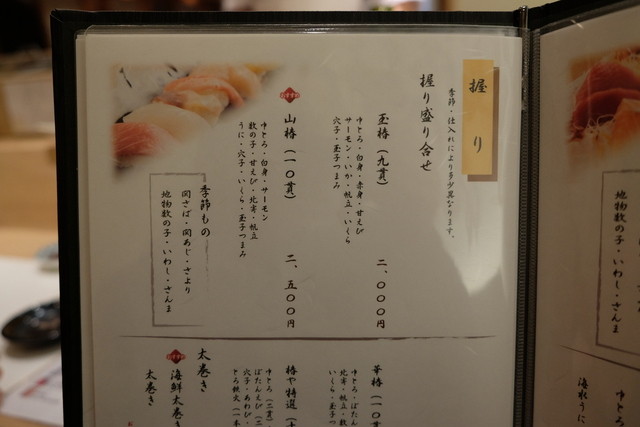 握り
季節・仕入れにより多少異なります。
握り盛り合せ
玉椿（九貫）
二、〇〇〇円
中とろ・白身・赤身・甘えび
サーモン・いか・帆立・いくら
穴子・玉子つまみ
山椿（一〇貫）
二、五〇〇円
中とろ・白身・サーモン
数の子・甘えび・北寄・帆立
うに・穴子・いくら・玉子つまみ
季節もの
関さば・関あじ・さより
地物数の子・いわし・さんま
華椿（一〇貫
中とろ・ぼたん
北寄・帆立・数
いくら・玉子つ
椿や特選（十
中とろ（二貫）
ぼたんえび（二
穴子・あわび・
とろ鉄火（一本
太巻き
海鮮太巻き
太巻き
季節もの
関さば・関あじ・さより
地物数の子・いわし・さんま
中とろ
海水うに